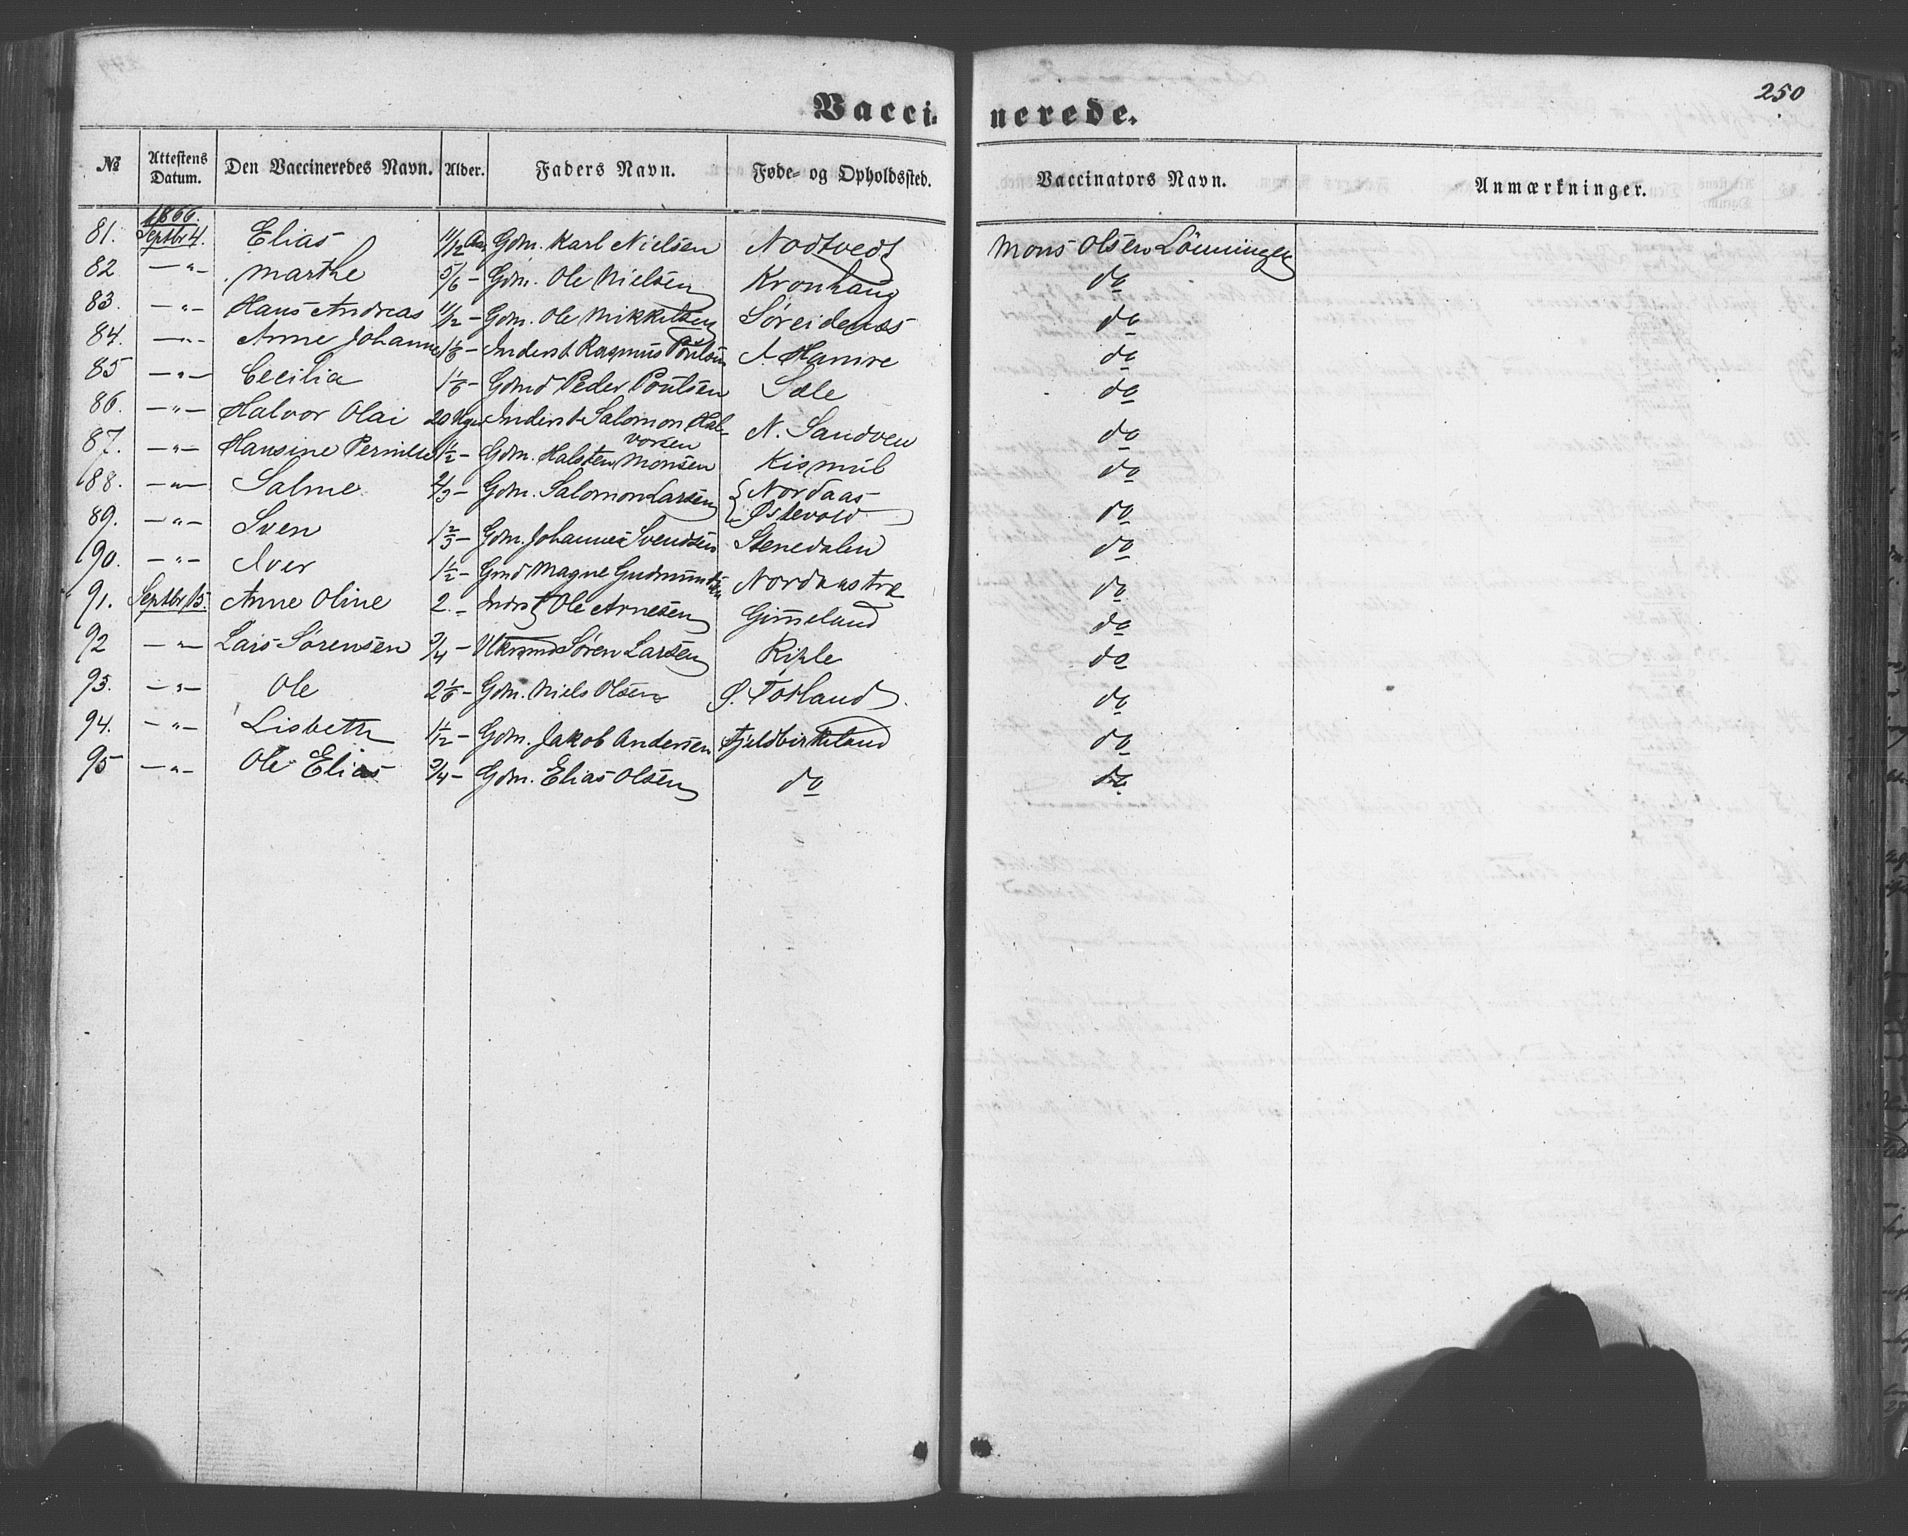 250
Vacci- nerede.
№ Attestens Datum. Den Vaccineredes Navn. Alder. Faders Navn. Føde- og Opholdssted. Vaccinators Navn. Anmærkninger.
1866.
81. Septbr 4. Elias 11/12 Aar Gdm. Karl Nielsen Nodtvedt Mons Olsen Lönningen
82 — " — Marthe 5/6 — Gdm. Ole Nielsen Kronhaug do
83. " — Hans Andreas 11/12 — Gdm. Ole Mikkelsen Søreidenæs do
84. — " — Anne Johanne 1 1/6 — Inderst Rasmus Poulsen N. Hamre do
85 — " — Cecilia 1 1/6 — Gdmd Peder Poulsen Sæle do
86. — " — Halvor Olai 20 Uger Inderst Salomon Hal-
vorsen N. Sandven do
87. — " — Hansine Pernille 1 1/2 — Gdm. Halsten Monsen Kismul do
88. — " — Salme 2/3 — Gdm. Salomon Larsen { Nordaas
Østevold do
89. — " — Sven 1 2/3 — Gdm. Johannes Svendsen Stenedalen do
90. — " — Iver 1 1/2 — Gmd Magne Gudmundsen do
91. Septbr 15. Anne Oline 2. — Indrst Ole Arnesen Gimeland do
92 — " — Lars Sørensen 3/4 — Søren Larsen Riple do
93. — " — Ole 2 1/6 — Gdm. Niels Olsen Ø. Totland do
94. — " — Lisbeth 1 1/12 — Gdm. Jakob Andersen Fjeldbirkeland do
95 — " — Ole Elias 3/4 — Gdm. Elias Olsen do do